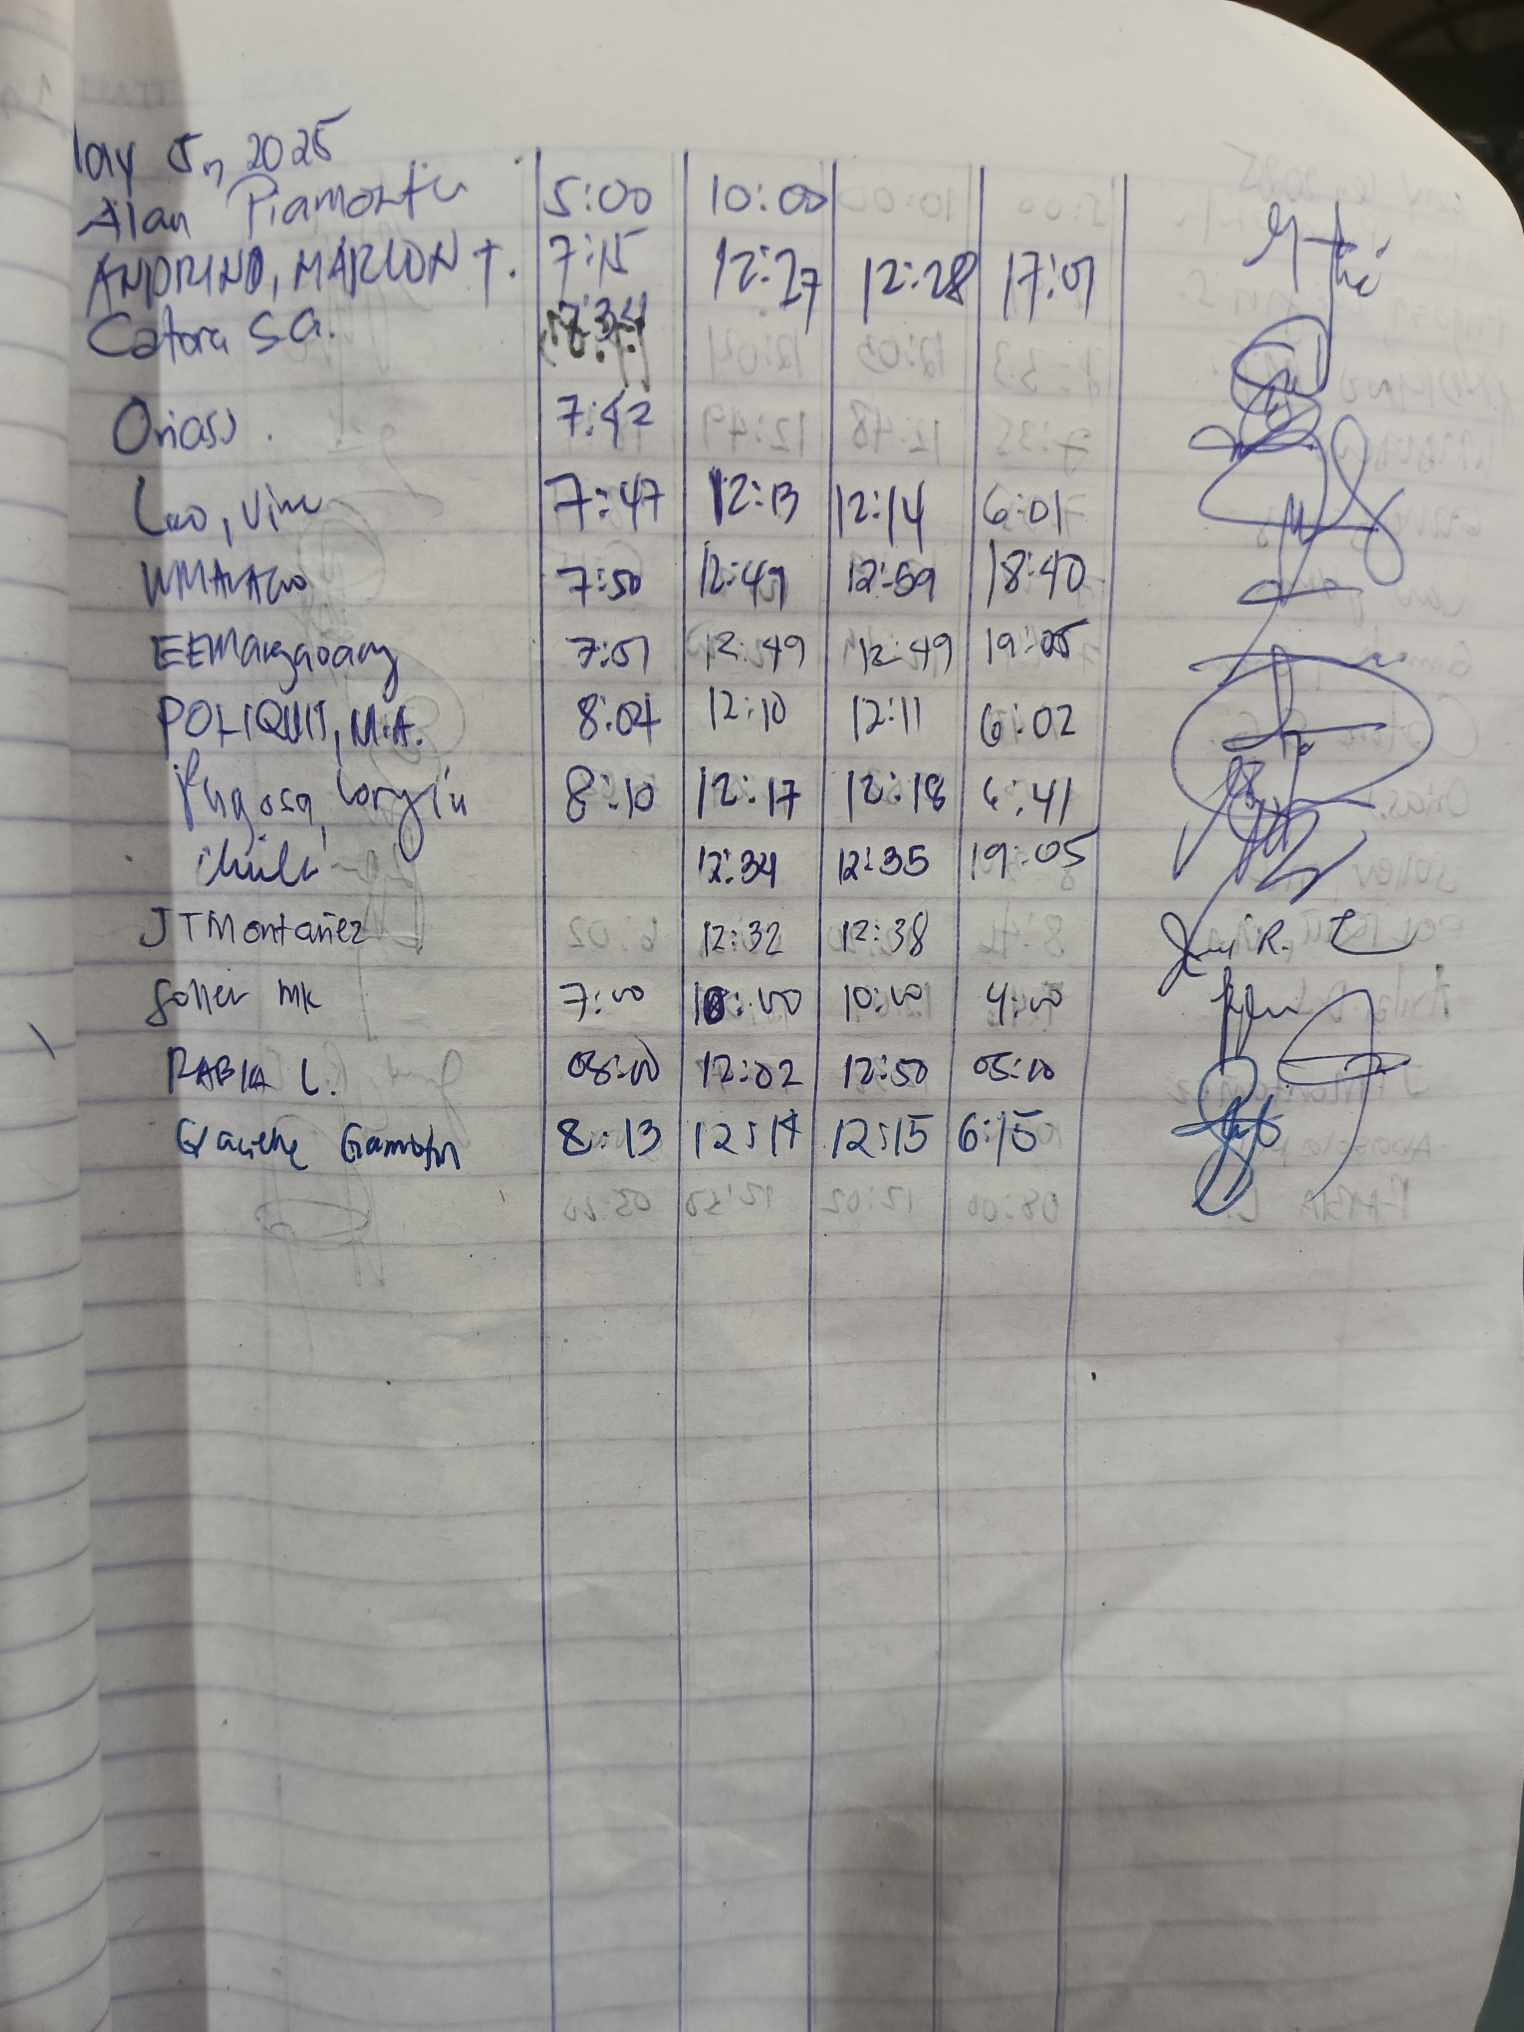 May 5, 2025
Alan Piamonte 5:00 10:00
ANDRINO, MARLON T. 7:15 12:27 12:28 17:01
Catora S.G.
Orias 7:42
Lao, Vina 7:47 12:13 12:14 6:01
7:50 12:49 12:59 18:40
EEMangaoang 7:51 12:49 12:49 19:05
POLIQUIT, M.A. 8:04 12:10 12:11 6:02
8:10 12:17 12:18 6:41
12:34 12:35 19:05
JTMontañez 12:32 12:38
Soller MK 7:00 10:00 10:00 4:00
RABIA L. 08:00 12:02 12:50 05:00
8:13 12:14 12:15 6:15